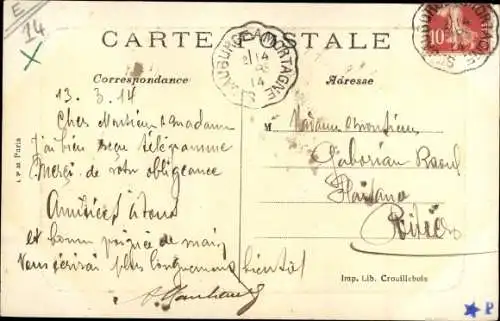 E
14
CARTE POSTALE
STE GAUBURGE A MORTAGNE
14
14
10
Correspondance
Adresse
13. 3. 14
Cher Monsieur & madame
J'ai bien reçu télégramme
Merci de votre obligeance
Amitiés à tous
et bonne poignée de main
Vous écrirai plus longuement bientôt
M
Madame & Monsieur
Gaborian Raoul
Poitiers
Paris
Imp. Lib. Crouillebois
P